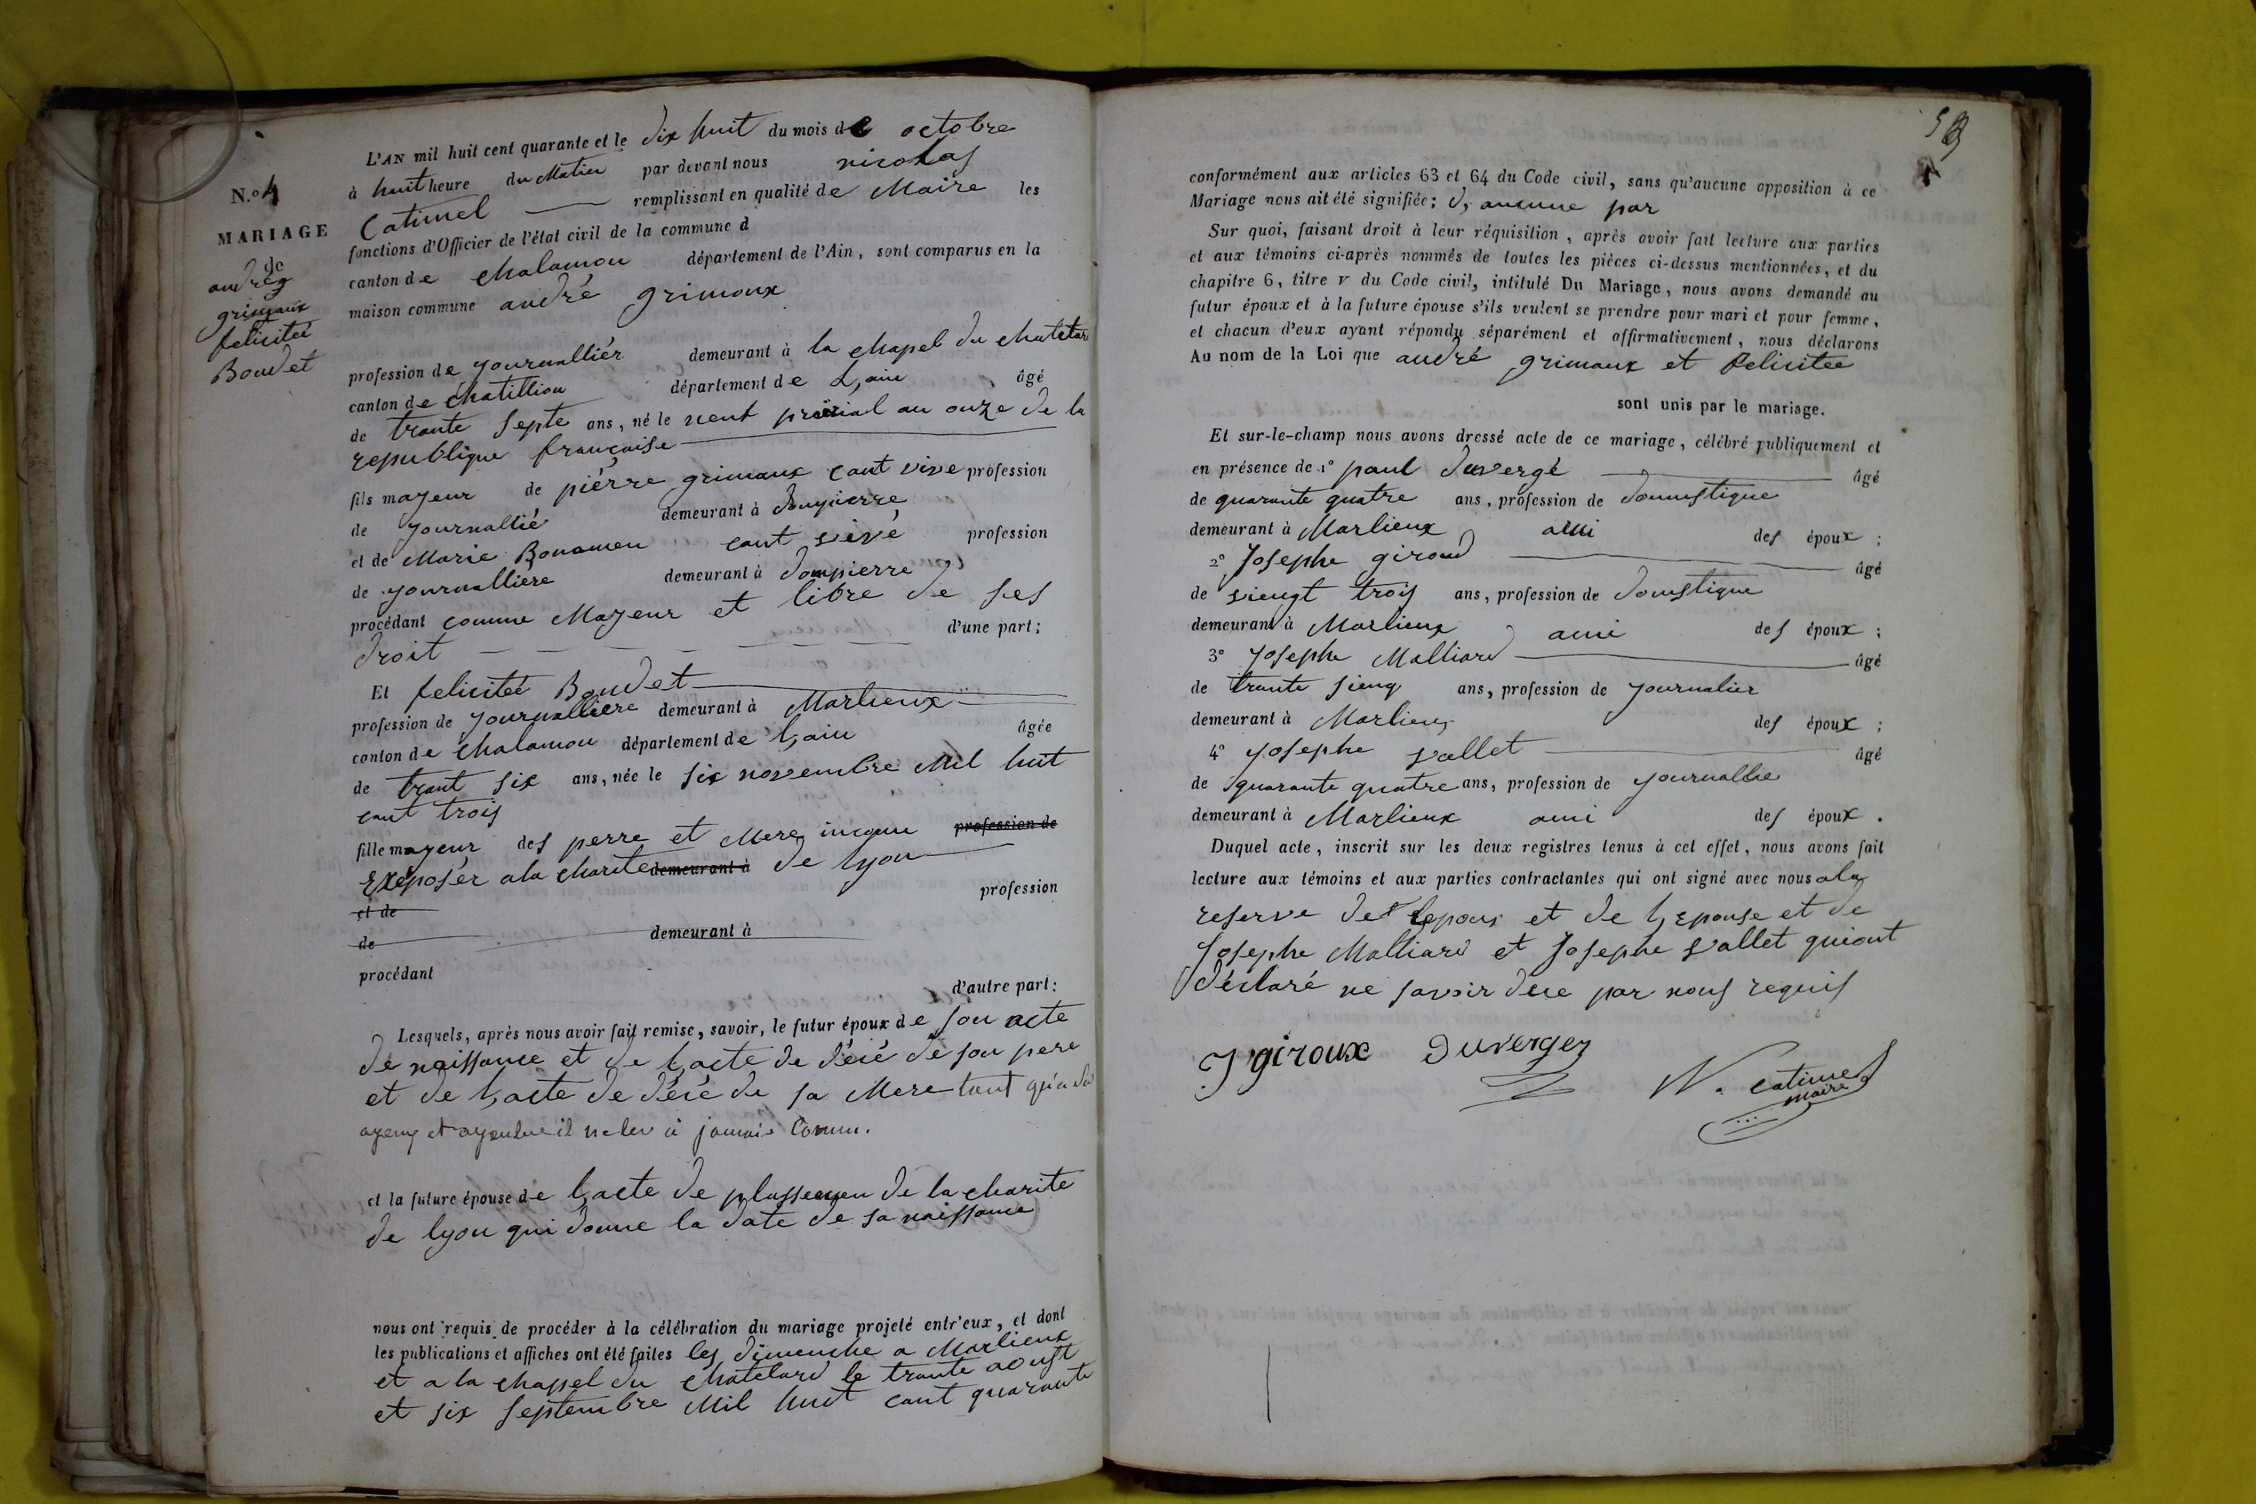 N.º 4
MARIAGE
de
andrég
grimaux
felicitée
Boudet
L'AN mil huit cent quarante et le dix huit du mois de octobre
à huit heure du Matin par devant nous nicolas
Catimel remplissant en qualité de Maire les
fonctions d'Officier de l'état civil de la commune d
canton de chalamon département de l'Ain, sont comparus en la
maison commune andré grimoux
profession de journalliér demeurant à la chapel du chatelar
canton de chatillion département de L,ain âgé
de trante septe ans, né le neuf prairial an onze de la
republique française
fils mayeur de piérre grimaux cant vive profession
de journallié demeurant à dompierre
et de Marie Bonamen cant vivé profession
de journallière demeurant à dompierre
procédant comme Mayeur et libre de ses
droit d'une part;
Et felicitée Boudet
profession de journalliere demeurant à Marlieux
canton de chalamon département de l,ain âgée
de trant six ans, née le six novembre Mil huit
cant trois
fille mayeur des perre et Mere incgnu profession de
Exéposér a la charite demeurant à de lyon
et de profession
de demeurant à
procédant
d'autre part:
Lesquels, après nous avoir fait remise, savoir, le futur époux de son acte
de naissance et de l,acte de décé de son pere
et de l,acte de décé de sa Mere tant qu'a
il ne les à jamais Connu.
et la future épouse de l,acte de plassemen de la charite
de lyon qui donne la date de sa naissance
nous ont requis de procéder à la célébration du mariage projeté entr'eux, et dont
les publications et affiches ont été faites les dimenche a Marlieux
et a la chapel du chatelard le trante aoust
et six septembre Mil huit cant quarante
conformément aux articles 63 et 64 du Code civil, sans qu'aucune opposition à ce
Mariage nous ait été signifiée; d, aucune par
Sur quoi, faisant droit à leur réquisition, après avoir fait lecture aux parties
et aux témoins ci-après nommés de toutes les pièces ci-dessus mentionnées, et du
chapitre 6, titre V du Code civil, intitulé Du Mariage, nous avons demandé au
futur époux et à la future épouse s'ils veulent se prendre pour mari et pour femme,
et chacun d'eux ayant répondu séparément et affirmativement, nous déclarons
Au nom de la Loi que andré grimaux et felicitee
sont unis par le mariage.
Et sur-le-champ nous avons dressé acte de ce mariage, célébré publiquement et
en présence de 1º paul duvergé âgé
de quarante quatre ans, profession de domestique
demeurant à Marlieux ami des époux;
2º Josephe giroud âgé
de viengt trois ans, profession de domstique
demeurant à Marlieux ami des époux;
3º Josephe Malliard âgé
de trante sienq ans, profession de journalier
demeurant à Marlieux des époux;
4º Josephe vallet âgé
de quarante quatre ans, profession de journallie
demeurant à Marlieux ami des époux.
Duquel acte, inscrit sur les deux registres tenus à cet effet, nous avons fait
lecture aux témoins et aux parties contractantes qui ont signé avec nous ala
reserve de lepoux et de l,epouse et de
Josephe Malliard et Josephe vallet quiont
déclaré ne savoir par nous requis
J giroux Duverger
N. catimel
maire